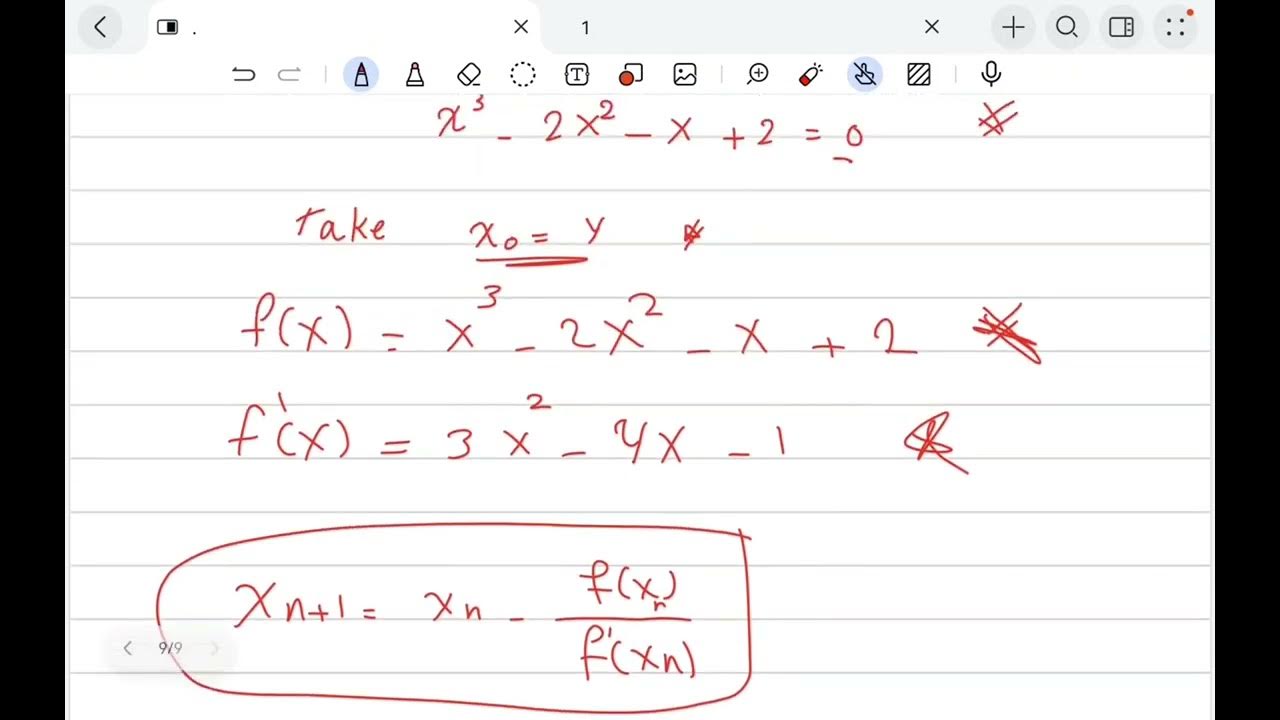 .
1
x³ - 2x² - x + 2 = 0
Take x₀ = 4
f(x) = x³ - 2x² - x + 2
f'(x) = 3x² - 4x - 1
xₙ₊₁ = xₙ - f(xₙ) / f'(xₙ)
9/9